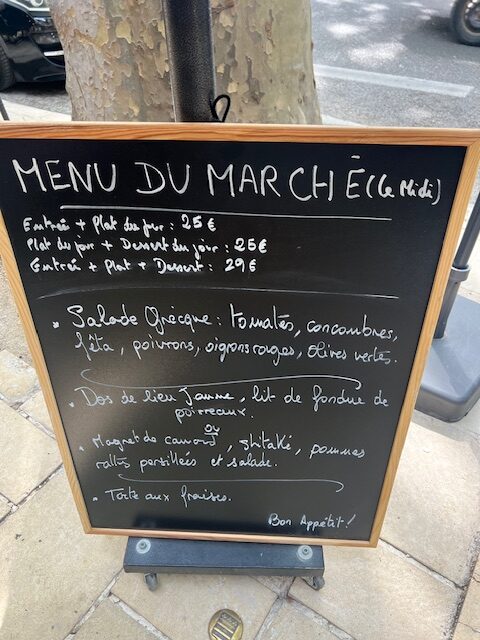 MENU DU MARCHÉ (Le Midi)
Entrée + Plat du jour : 25 €
Plat du jour + Dessert du jour : 25€
Entrée + Plat + Dessert : 29€
• Salade Grecque : tomates, concombres,
fêta, poivrons, oignons rouges, olives vertes.
• Dos de lieu Jaune, lit de fondue de
poirreaux.
ou
• Magret de canard, shitaké, pommes
rattes persillées et salade.
• Tarte aux fraises.
Bon Appétit !